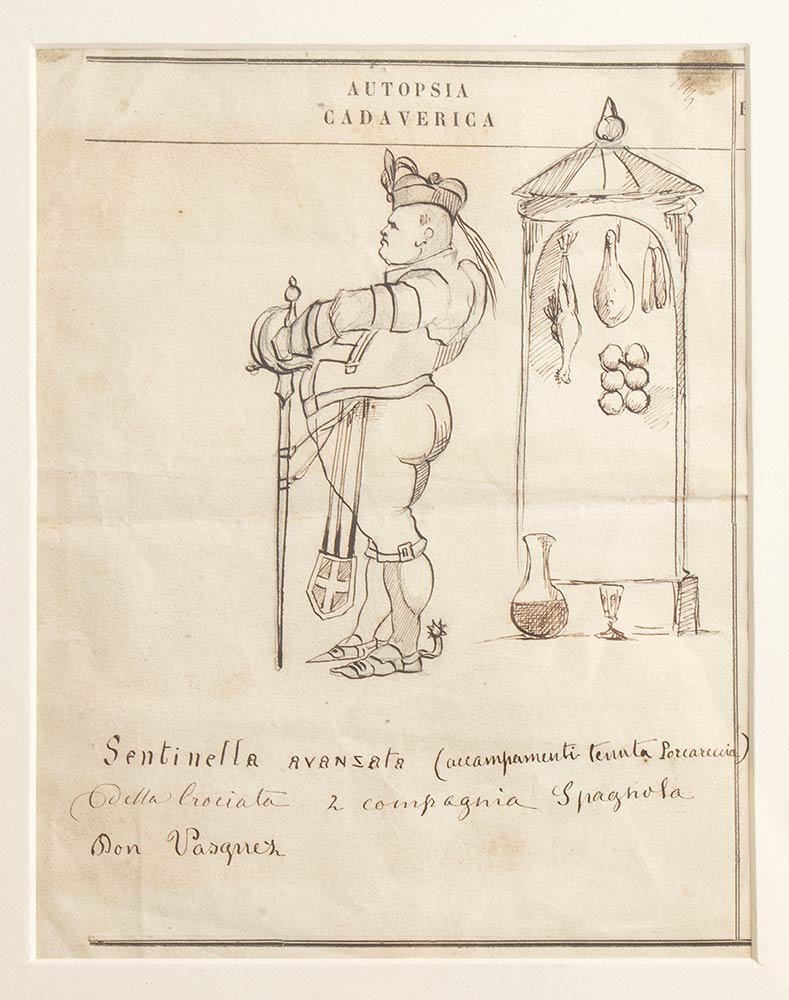 AUTOPSIA
CADAVERICA
Sentinella avanzata (accampamenti tenuta Porcareccia)
della Crociata 2 compagnia Spagnola
Don Vasquez